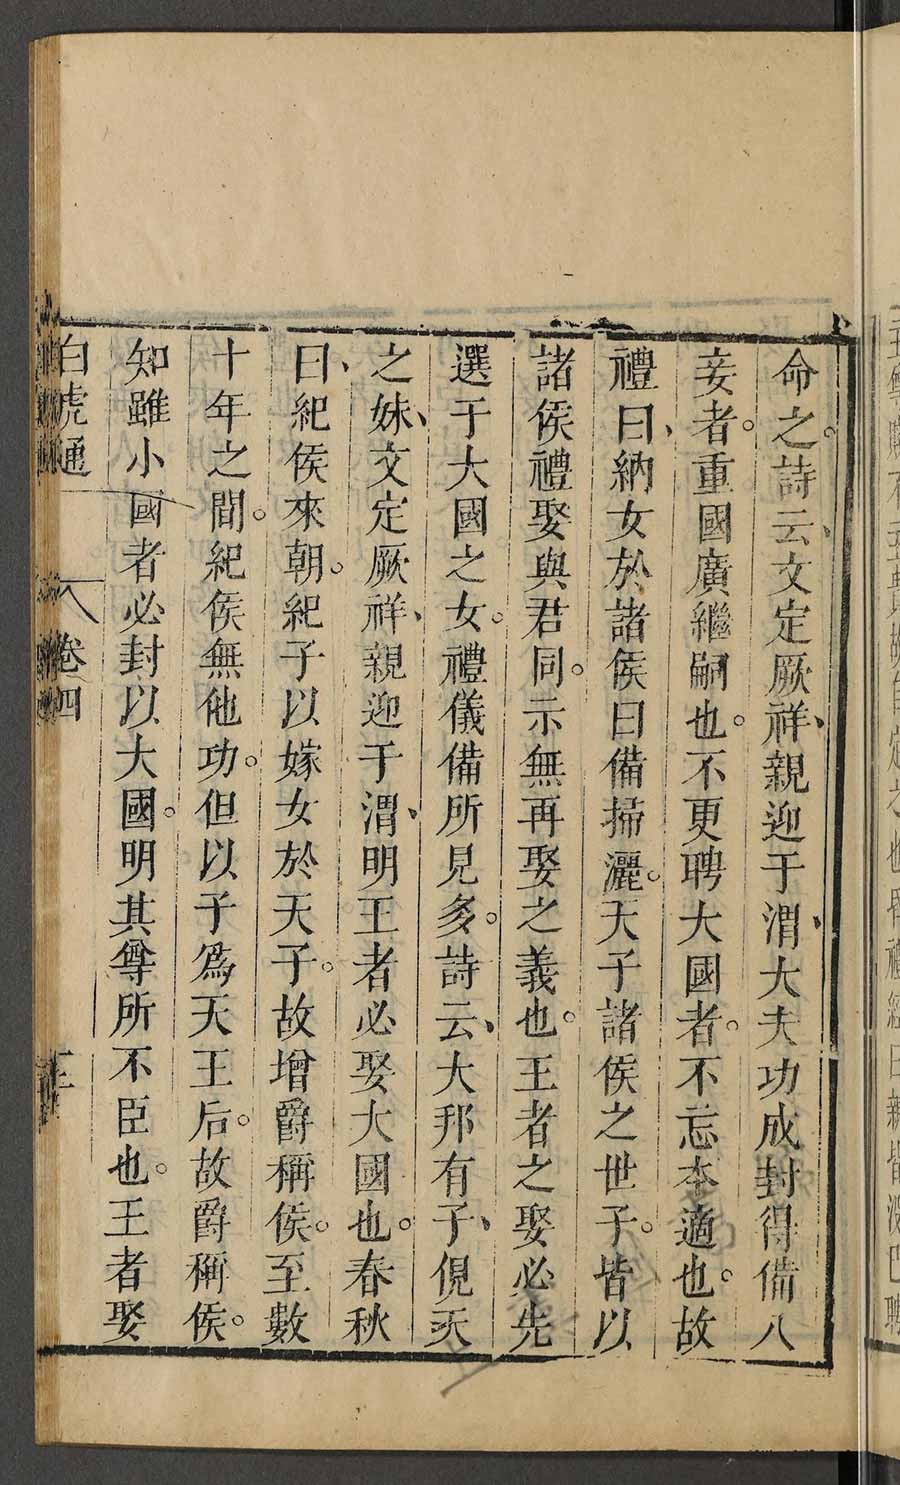 命之。詩云、文定厥祥、親迎于渭、大夫功成封得備八
妾者。重國廣繼嗣也。不更聘大國者。不忘本適也。故
禮曰、納女於諸侯曰備掃灑。天子諸侯之世子。皆以
諸侯禮娶與君同。示無再娶之義也。王者之娶必先
選于大國之女。禮儀備所見多。詩云、大邦有子、俔天
之妹、文定厥祥、親迎于渭、明王者必娶大國也。春秋
曰、紀侯來朝。紀子以嫁女於天子。故增爵稱侯。至數
十年之間。紀侯無他功。但以子爲天王后。故爵稱侯。
知雖小國者必封以大國。明其尊所不臣也。王者娶
白虎通 卷四